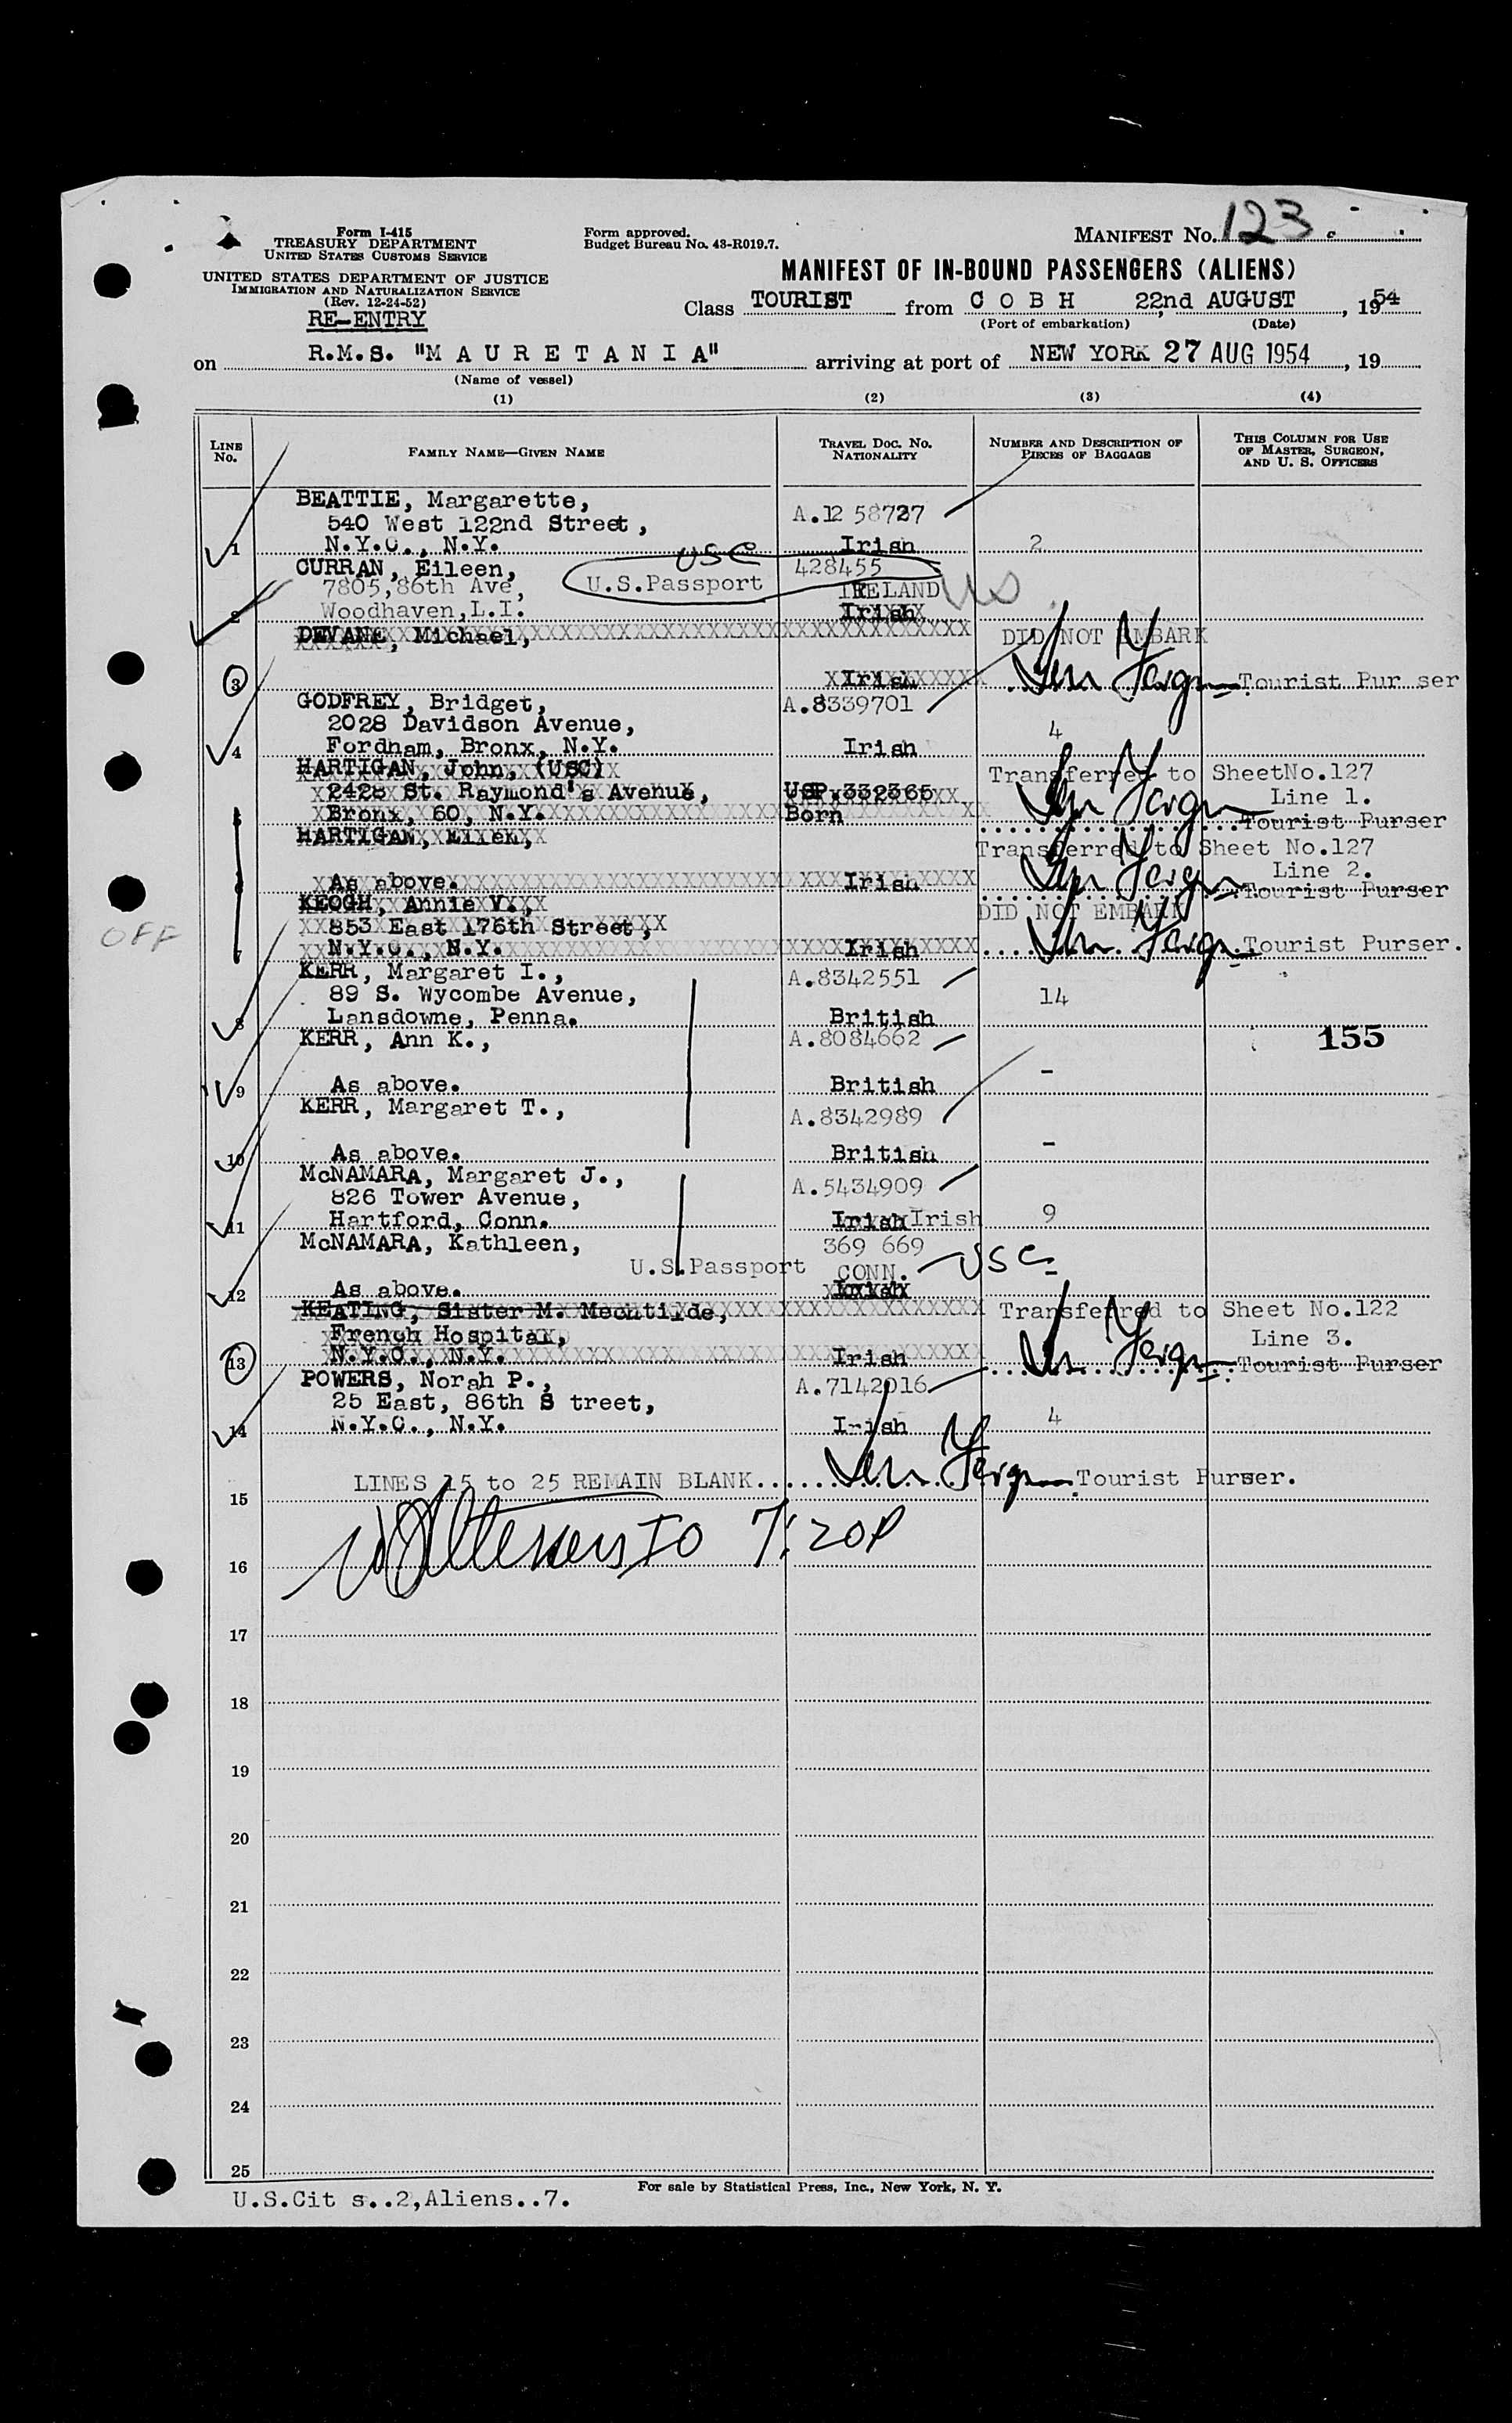 Form I-415
TREASURY DEPARTMENT
UNITED STATES CUSTOMS SERVICE
UNITED STATES DEPARTMENT OF JUSTICE
IMMIGRATION AND NATURALIZATION SERVICE
(Rev. 12-24-52)
RE-ENTRY
Form approved.
Budget Bureau No. 43-R019.7.
MANIFEST No. 123
MANIFEST OF IN-BOUND PASSENGERS (ALIENS)
Class TOURIST from C O B H 22nd AUGUST, 1954
(Port of embarkation) (Date)
on R.M.S. "M A U R E T A N I A" arriving at port of NEW YORK 27 AUG 1954, 19
(Name of vessel)
(1) (2) (3) (4)
LINE No. FAMILY NAME—GIVEN NAME TRAVEL DOC. No. NATIONALITY NUMBER AND DESCRIPTION OF PIECES OF BAGGAGE THIS COLUMN FOR USE OF MASTER, SURGEON, AND U. S. OFFICERS
BEATTIE, Margarette,
540 West 122nd Street, A.12 58727
1 N.Y.C., N.Y. Irish 2
USC
CURRAN, Eileen, 428455
7805,86th Ave, U.S.Passport IRELAND US
2 Woodhaven,L.I. Irish
DEVANE, Michael, DID NOT EMBARK
3 Irish Tourist Pur ser
GODFREY, Bridget, A.8339701
2028 Davidson Avenue,
4 Fordham, Bronx, N.Y. Irish 4
HARTIGAN, John, (USC) Transferred to SheetNo.127
2428 St. Raymond's Avenue, USP.332365 Line 1.
5 Bronx, 60, N.Y. Born Tourist Purser
HARTIGAN, Eileen, Transferred to Sheet No.127
Line 2.
6 As above. Irish Tourist Purser
KEOGH, Annie V., DID NOT EMBARK
853 East 176th Street,
OFF
7 N.Y.C., N.Y. Irish Tourist Purser.
KERR, Margaret I., A.8342551
89 S. Wycombe Avenue, 14
8 Lansdowne, Penna. British
KERR, Ann K., A.8084662 155
9 As above. British -
KERR, Margaret T., A.8342989
10 As above. British -
McNAMARA, Margaret J., A.5434909
826 Tower Avenue,
11 Hartford, Conn. Irish Irish 9
McNAMARA, Kathleen, 369 669
U.S.Passport CONN. USC
12 As above. Irish
KEATING, Sister M. Mechtilde, Transferred to Sheet No.122
French Hospital, Line 3.
13 N.Y.C., N.Y. Irish Tourist Purser
POWERS, Norah P., A.7142016
25 East, 86th S treet,
14 N.Y.C., N.Y. Irish 4
LINES 15 to 25 REMAIN BLANK Tourist Purser.
15
IO 7:20P
16
17
18
19
20
21
22
23
24
25
For sale by Statistical Press, Inc., New York, N. Y.
U.S.Cit s..2,Aliens..7.